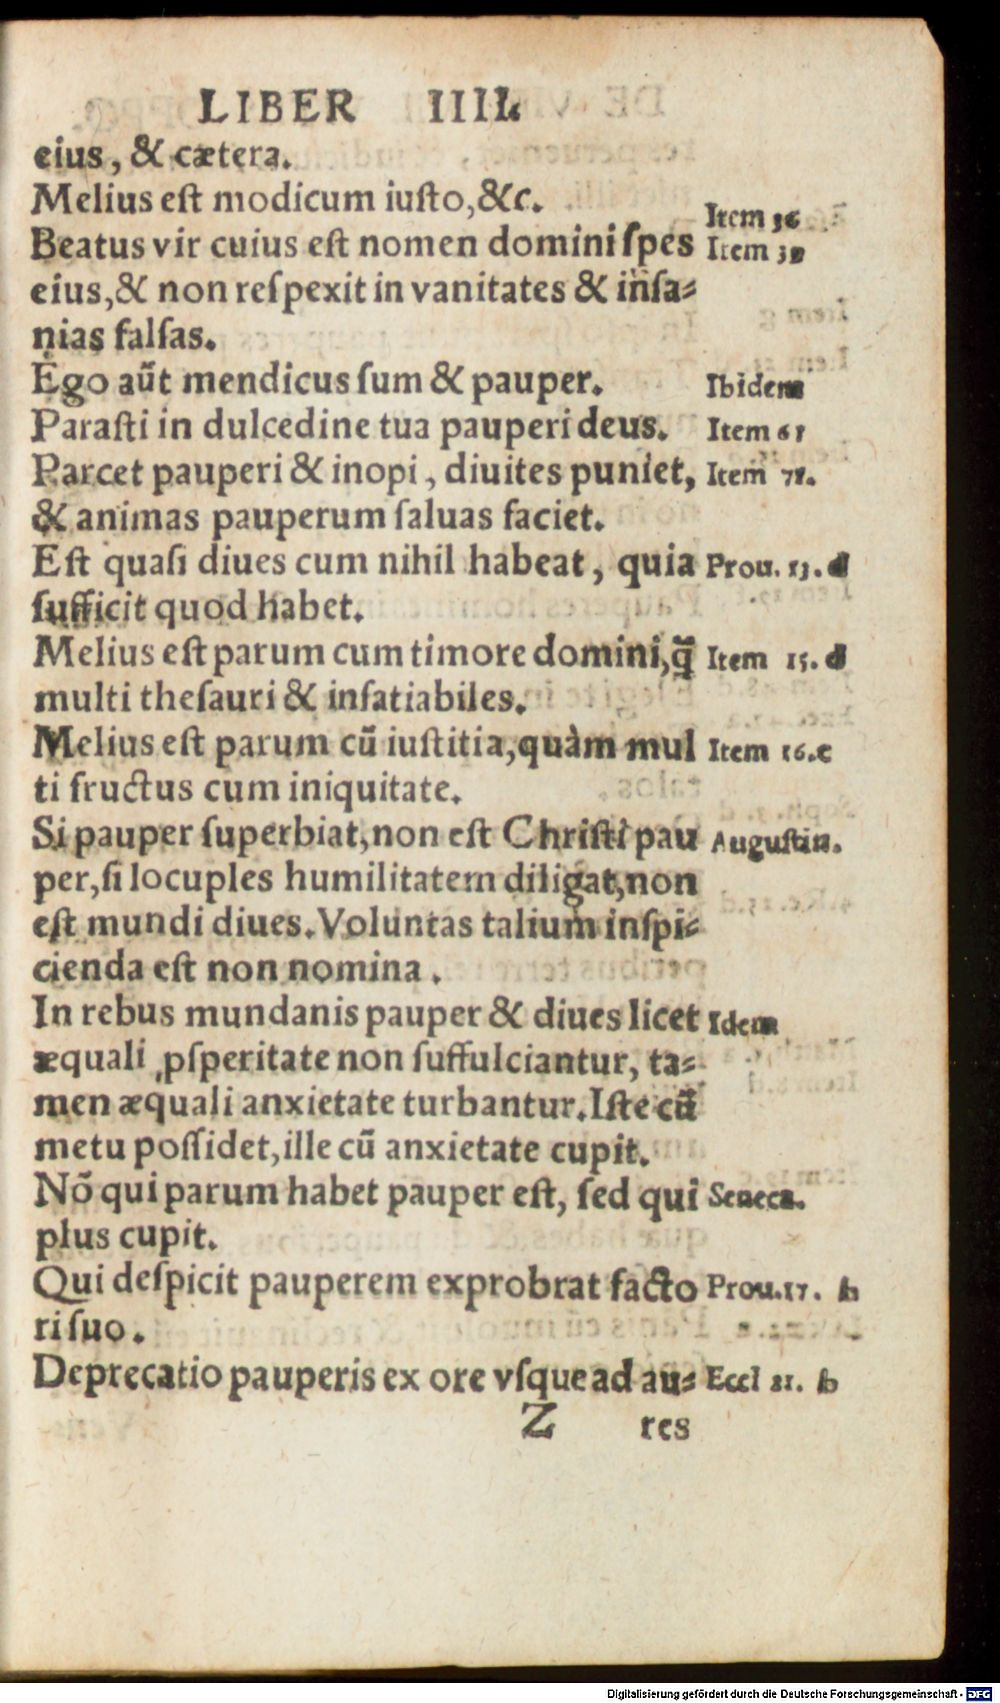 LIBER IIII.
eius, & cætera.
Melius eſt modicum iuſto, &c. Item 36
Beatus vir cuius eſt nomen domini ſpes Item 39
eius, & non reſpexit in vanitates & inſa⸗
nias falſas.
Ego aūt mendicus ſum & pauper. Ibidem
Paraſti in dulcedine tua pauperi deus. Item 61
Parcet pauperi & inopi, diuites puniet, Item 71.
& animas pauperum ſaluas faciet.
Eſt quaſi diues cum nihil habeat, quia Prou. 13. d
ſufficit quod habet.
Melius eſt parum cum timore domini, q̃ Item 15. d
multi theſauri & inſatiabiles.
Melius eſt parum cū iuſtitia, quàm mul Item 16. c
ti fructus cum iniquitate.
Si pauper ſuperbiat, non eſt Chriſti pau Auguſtin.
per, ſi locuples humilitatem diligat, non
eſt mundi diues. Voluntas talium inſpi⸗
cienda eſt non nomina.
In rebus mundanis pauper & diues licet Idem
æquali ꝓſperitate non ſuffulciantur, ta⸗
men æquali anxietate turbantur. Iſte cū
metu poſſidet, ille cū anxietate cupit.
Nō qui parum habet pauper eſt, ſed qui Seneca.
plus cupit.
Qui deſpicit pauperem exprobrat facto Prou. 17. b
ri ſuo.
Deprecatio pauperis ex ore vſque ad au⸗ Eccl 21. b
Z res
Digitalisierung gefördert durch die Deutsche Forschungsgemeinschaft - DFG